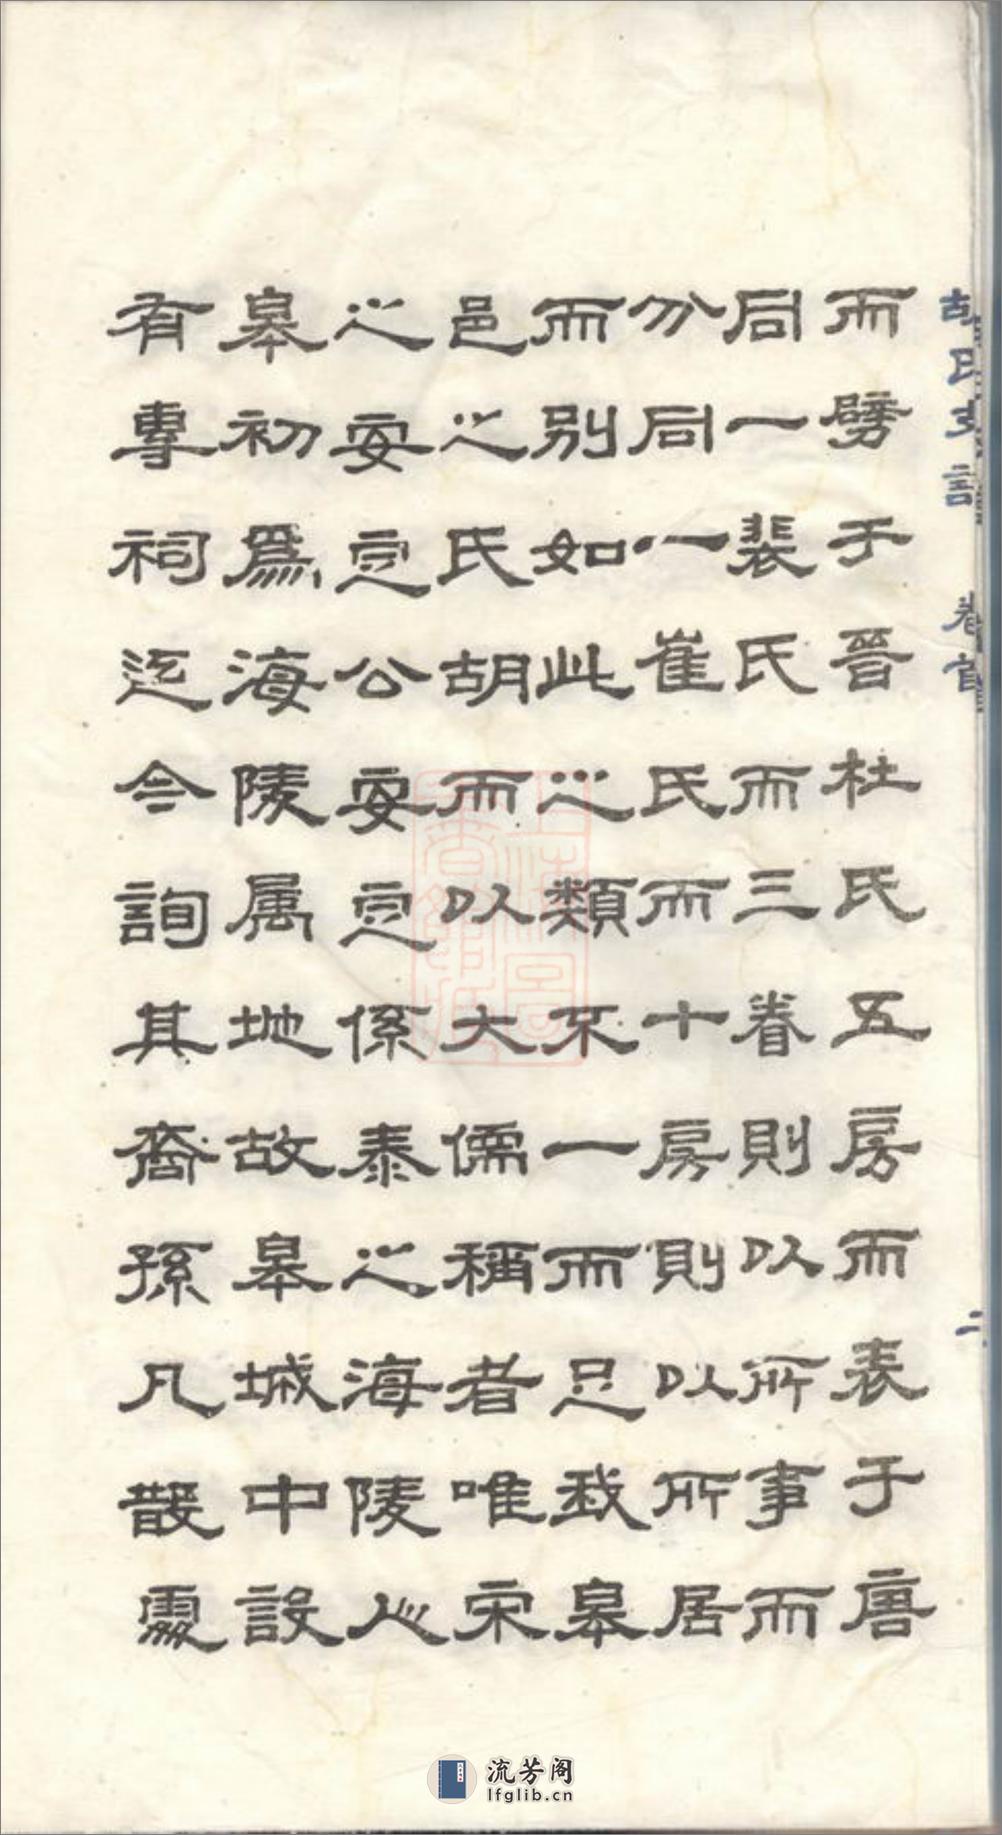 胡氏支譜 卷首 二
而劈于晉杜氏五房而表于唐
同一裴氏而三眷則以所事而
分同一崔氏而十房則以所居
而別如此之類不一而足我皋
邑之氏胡而以大儒稱者唯宋
之安定公安定係泰之海陵人
皋初爲海陵属地故皋城中設
有專祠迄今詢其裔孫凡散處
流芳阁
lfglib.cn